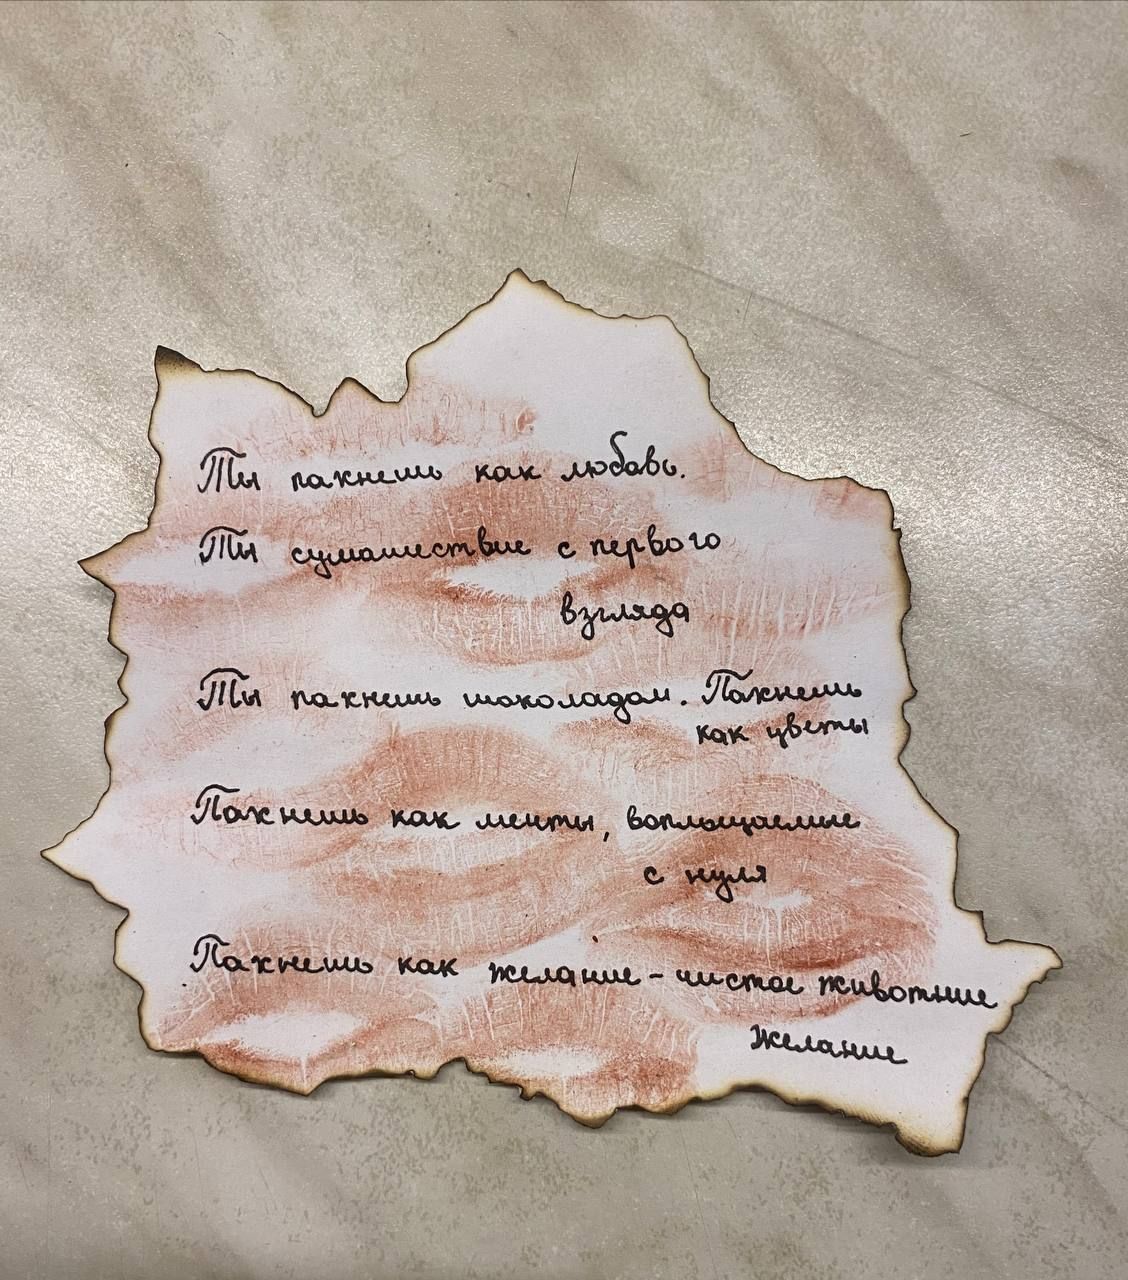 Ты пахнешь как любовь.
Ты сумашествие с первого
взгляда
Ты пахнешь шоколадом. Пахнешь
как цветы
Пахнешь как менты, воплощаемые
с нуля
Пахнешь как желание - чистое животние
желание